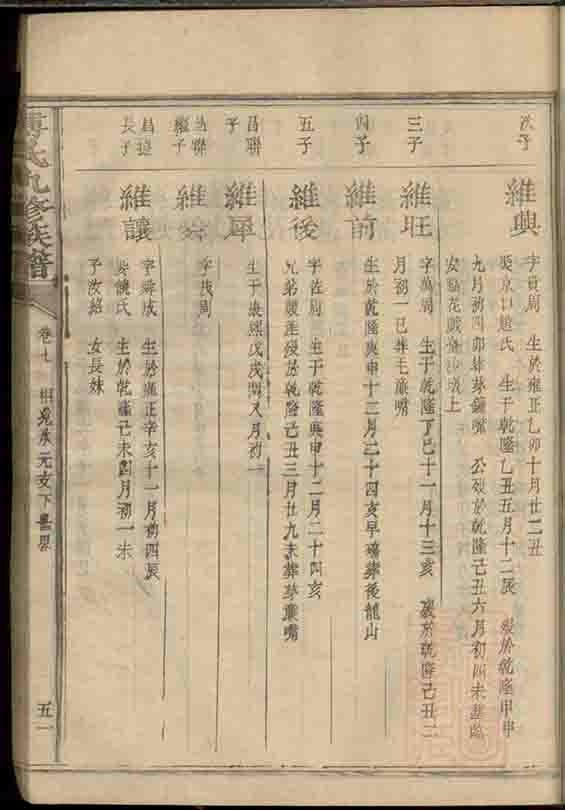 次子
維興
字貢周 生於雍正乙卯十月廿二丑
娶京口趙氏 生于乾隆乙丑五月十二辰 歿於乾隆甲申
九月初四卯葬茅鑪嘴 公歿於乾隆己丑六月初四未葬臨
安 花 上
三子
維旺
字萬周 生于乾隆丁巳十一月十三亥 歿於乾隆己丑二
月初一巳葬毛廉嘴
四子
維前
生於乾隆庚申十二月二十四亥早殤葬後龍山
五子
維後
字佐周 生于乾隆庚申十二月二十四亥
兄弟雙產歿於乾隆己丑三月廿九未葬茅廉嘴
昌聯
子
維犀
生于康熙戊戌閏八月初一
昌聯
繼子
維
字茂周
昌 
長子
維讓
字舜成 生於雍正辛亥十一月初四辰
娶饒氏 生於乾隆己未四月初一未
子汝絡 女長妹
氏九修族譜
卷七
五一